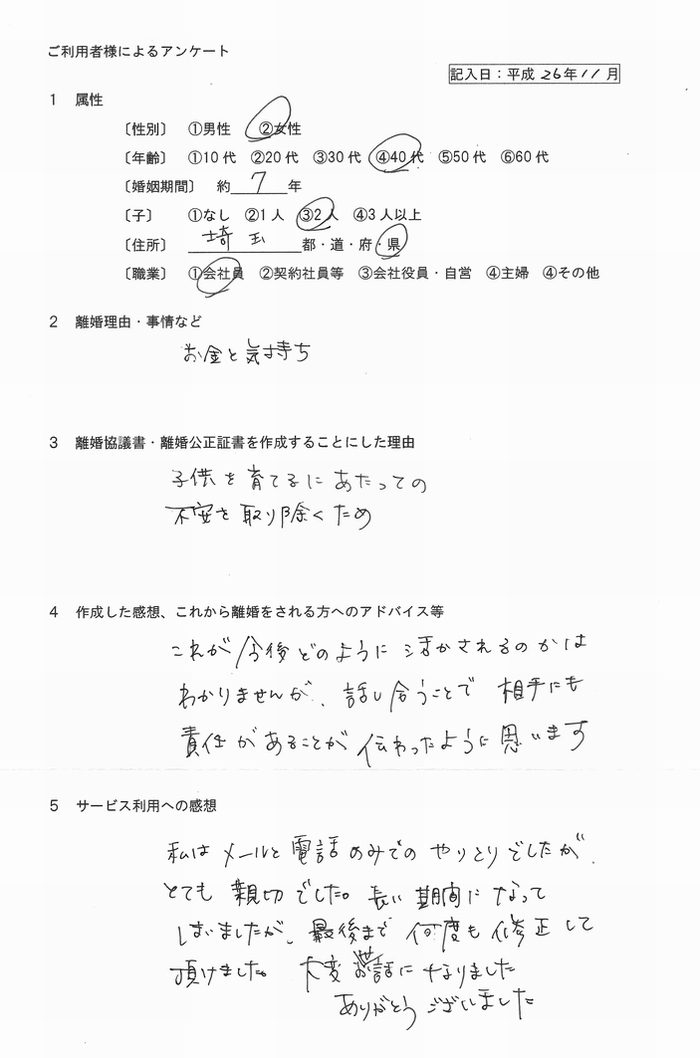 ご利用者様によるアンケート
記入日：平成 26年11月
1 属性
〔性別〕 ①男性 ②女性
〔年齢〕 ①10代 ②20代 ③30代 ④40代 ⑤50代 ⑥60代
〔婚姻期間〕 約 7 年
〔子〕 ①なし ②1人 ③2人 ④3人以上
〔住所〕 埼玉 都・道・府・県
〔職業〕 ①会社員 ②契約社員等 ③会社役員・自営 ④主婦 ④その他
2 離婚理由・事情など
お金と気持ち
3 離婚協議書・離婚公正証書を作成することにした理由
子供を育てるにあたっての
不安を取り除くため
4 作成した感想、これから離婚をされる方へのアドバイス等
これが今後どのように活かされるのかは
わかりませんが、話し合うことで相手にも
責任があることが伝わったように思います
5 サービス利用への感想
私はメールと電話のみでのやりとりでしたが、
とても親切でした。長い期間になって
しまいましたが、最後まで何度も修正して
頂けました。大変お世話になりました
ありがとうございました